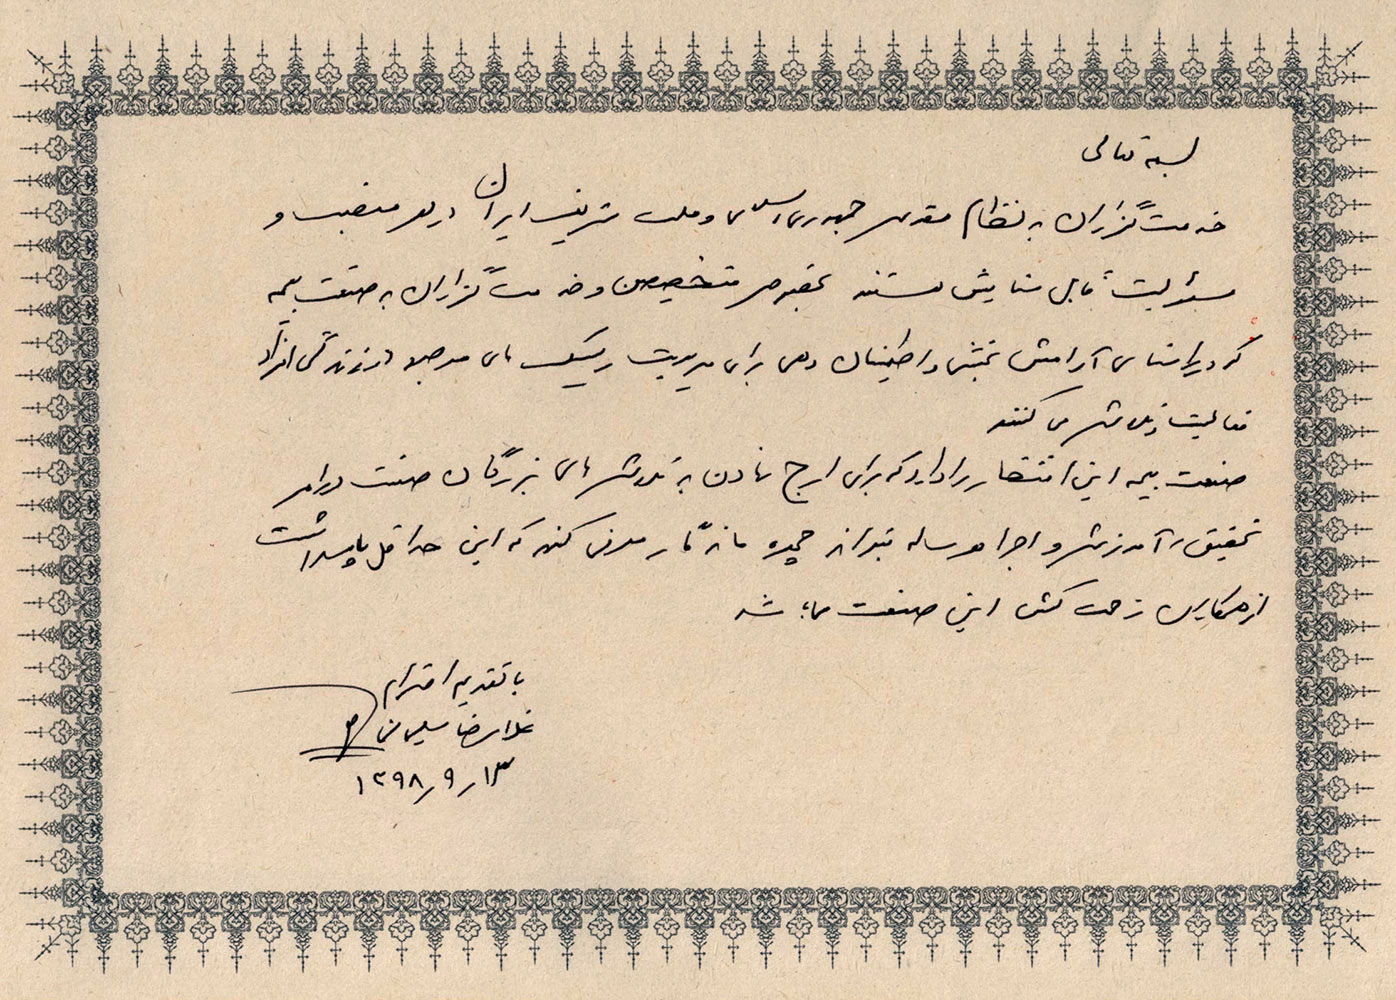 بسمه تعالی
خدمت‌گزاران به نظام مقدس جمهوری اسلامی و ملت شریف ایران در هر منصب و
مسئولیت قابل ستایش هستند بخصوص متخصصین و خدمت‌گزاران به صنعت بیمه
که در راستای آرامش بخشی و اطمینان دهی برای مدیریت ریسک های موجود در زندگی افراد
فعالیت و تلاش می کنند
صنعت بیمه این انتظار را دارد که برای ارج نهادن به تلاش های بزرگان صنعت در امر
تحقیق، آموزش و اجرا هر ساله بتواند چهره ماندگار معرفی کند که این حداقل پاسداشت
از همکاران زحمت کش این صنعت می باشد
با تقدیم احترام
غلامرضا سلیمانی
۱۳۹۸٫۹٫۱۳